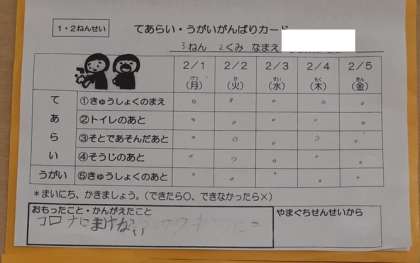 1・2ねんせい
てあらい・うがいがんばりカード
3ねん 2くみ なまえ
2/1 2/2 2/3 2/4 2/5
(月) (火) (水) (木) (金)
てあらい
①きゅうしょくのまえ
②トイレのあと
③そとであそんだあと
④そうじのあと
うがい ⑤きゅうしょくのあと
*まいにち、かきましょう。(できたら〇、できなかったら×)
おもったこと・かんがえたこと やまぐちせんせいから
コロナにまけない